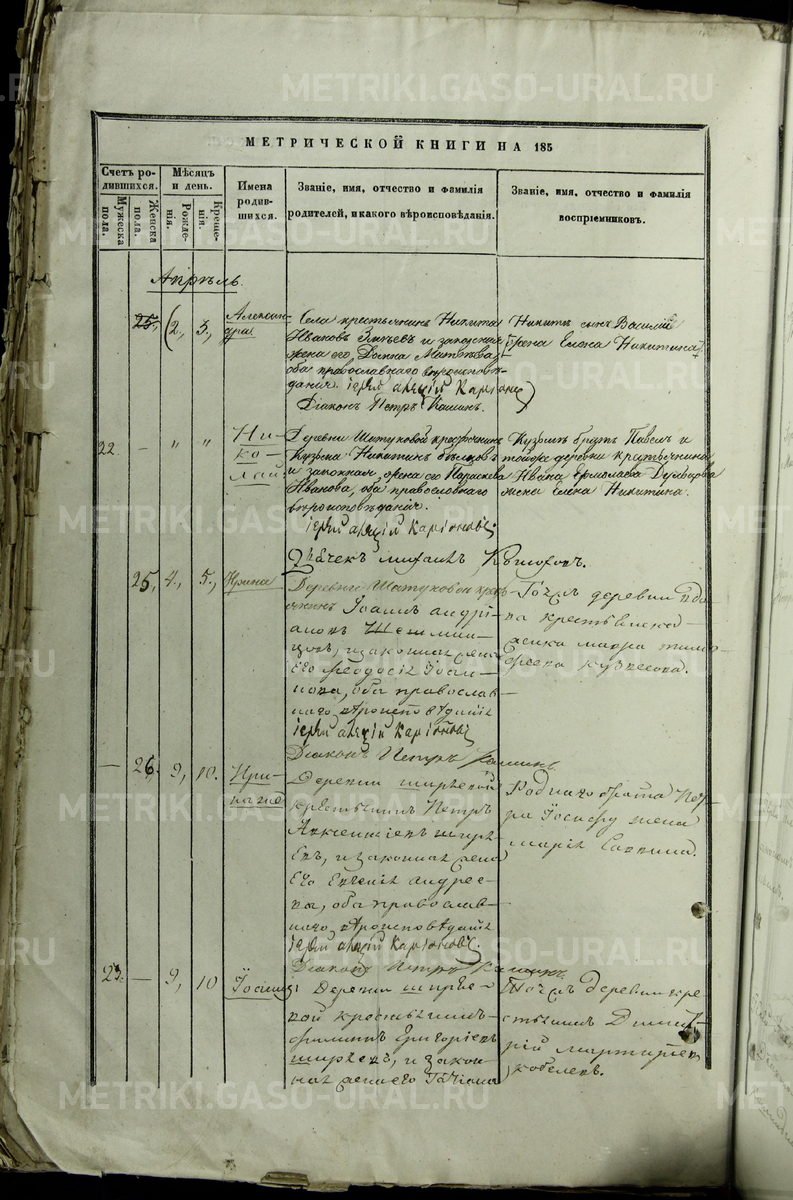 МЕТРИЧЕСКОЙ КНИГИ НА 185
Счетъ ро-
дившихся.
Мужеска
пола.
Женска
пола.
Мѣсяцъ
и день.
Рожде-
нія.
Креще-
нія.
Имена
родив-
шихся.
Званіе, имя, отчество и фамилія
родителей, и какого вѣроисповѣданія.
Званіе, имя, отчество и фамилія
воспріемниковъ.
Апрѣль.
25, 2, 3, Алексан-
дра
Села крестьянинъ Никита
Ивановъ и законная
жена его Домна Матвѣева,
оба православнаго вѣроиспов-
данія. Іерей
Діаконъ Петръ Кашинъ.
Никиты сынъ Василій
жена Елена Никитина.
22 — " " Ни-
ко-
лай
Деревни Шатуковой крестьянинъ
Кузьма Никитинъ Бѣлковъ
и законная жена его Параскева
Иванова, оба православнаго
вѣроисповѣданія.
Іерей
Дьячекъ Михаилъ
Кузьмы братъ Павелъ и
тойже деревни крестьянина
Ивана Ермолаева
жена Елена Никитина.
25, 4, 5, Ирина
Деревни Шатуковой крес-
янинъ Іоаннъ Андрі-
ановъ
и законная жена
его Феодосія Іоан-
нова, оба православ-
наго вѣроисповѣданія
Іерей
Діаконъ Петръ Кашинъ
Тоже деревни вдо-
ва крестьянская
Мавра Тимо-
феева Кузнецова.
— 26, 9, 10. Ири-
на
Деревни Ширяевой
крестьянинъ Петръ
Авксентіевъ Ширя-
евъ, и законная жена
его Евгенія Андрее-
ва, оба православ-
наго вѣроисповѣданія
Іерей
Діаконъ Петръ Кашинъ
Роднаго брата Пет-
ра Іосифа жена
Марія Саввина.
23. — 9, 10 Іоаннъ
Деревни Ширяе-
вой крестьянинъ
Филиппъ Григоріевъ
Ширяевъ, и закон-
ная жена его Татіана
Тоже деревни кре-
стьянинъ Димит-
рій Мартиніевъ
Кобелевъ.
METRIKI.GASO-URAL.RU